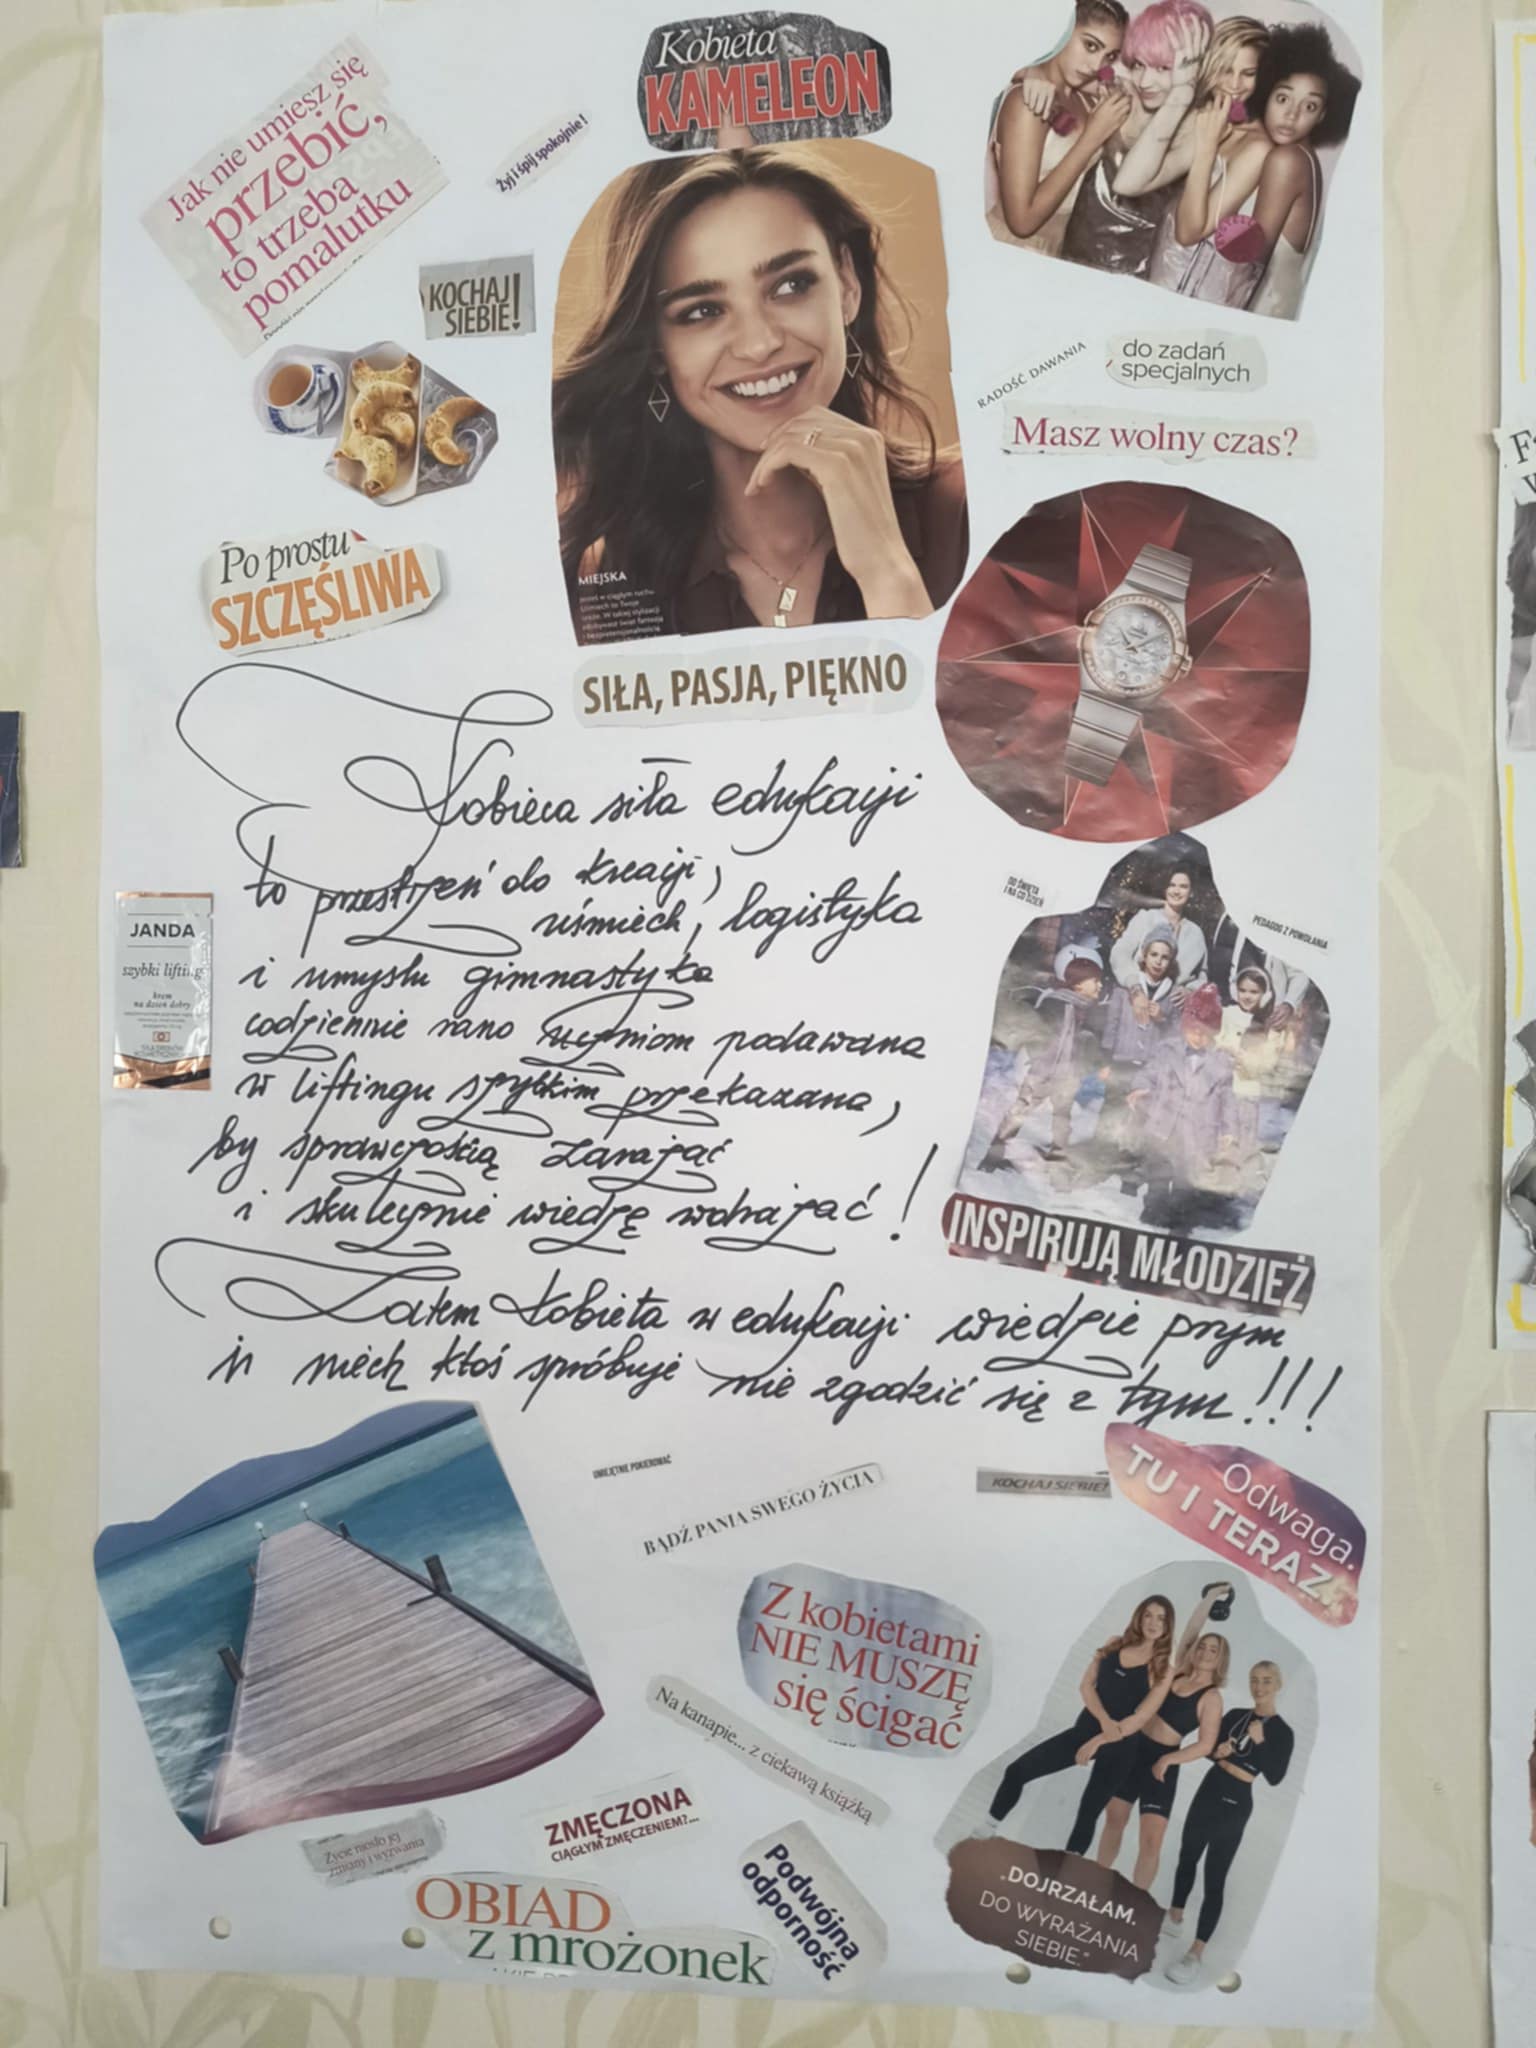 Kobieta
KAMELEON
Jak nie umiesz się
przebić,
to trzeba
pomalutku
Żyj i śpij spokojnie!
KOCHAJ
SIEBIE!
RADOŚĆ DAWANIA
do zadań
specjalnych
Masz wolny czas?
Po prostu
SZCZĘŚLIWA
MIEJSKA
SIŁA, PASJA, PIĘKNO
Kobieca siła edukacji
to przestrzeń do kreacji,
uśmiech, logistyka
i umysłu gimnastyka
codziennie rano uczniom podawana
w liftingu szybkim przekazana,
by sprawczością zarażać
i skutecznie wiedzę wdrażać!
Zatem kobieta w edukacji wiedzie prym
i niech ktoś spróbuje nie zgodzić się z tym!!!
JANDA
szybki lifting
krem
na dzień dobry
DO ŚWIĘTA
I NA CO DZIEŃ
PEDAGOG Z POWOŁANIA
INSPIRUJĄ MŁODZIEŻ
UMIEJĘTNIE POKIEROWAĆ
BĄDŹ PANIĄ SWEGO ŻYCIA
KOCHAJ SIEBIE!
Odwaga.
TU I TERAZ.
Z kobietami
NIE MUSZĘ
się ścigać
Na kanapie... z ciekawą książką
ZMĘCZONA
CIĄGŁYM ZMĘCZENIEM?...
Życie niosło jej
zmiany i wyzwania
OBIAD
z mrożonek
Podwójna
odporność
„DOJRZAŁAM.
DO WYRAŻANIA
SIEBIE."